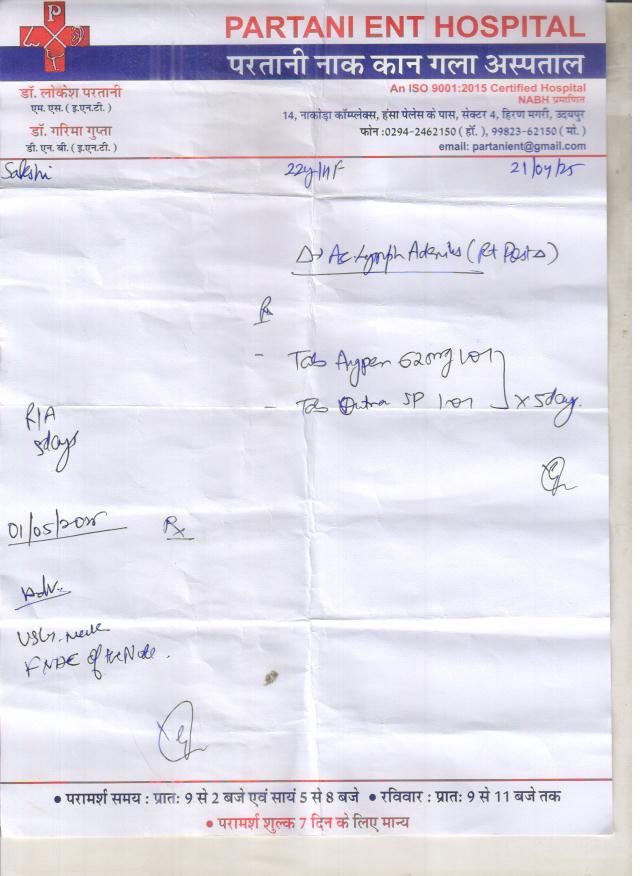 PARTANI ENT HOSPITAL
परतानी नाक कान गला अस्पताल
An ISO 9001:2015 Certified Hospital
NABH प्रमाणित
डॉ. लोकेश परतानी
एम. एस. ( इ.एन.टी. )
डॉ. गरिमा गुप्ता
डी. एन. बी. ( इ.एन.टी. )
14, नाकोड़ा कॉम्प्लेक्स, हंसा पेलेस के पास, सेक्टर 4, हिरण मगरी, उदयपुर
फोन :0294-2462150 ( हॉ. ), 99823-62150 ( मो. )
email: partanient@gmail.com
Sakshi 22y/F 21/04/25
Δ→ Ac Lymph Adenitis (Rt Post Δ)
Rx
- Tab 625mg 101
- Tab SP 101 x 5day.
R/A
5days
01/05/2025 Rx
Adv.
USG. neck
FNAC of the Node.
• परामर्श समय : प्रातः 9 से 2 बजे एवं सायं 5 से 8 बजे • रविवार : प्रातः 9 से 11 बजे तक
• परामर्श शुल्क 7 दिन के लिए मान्य